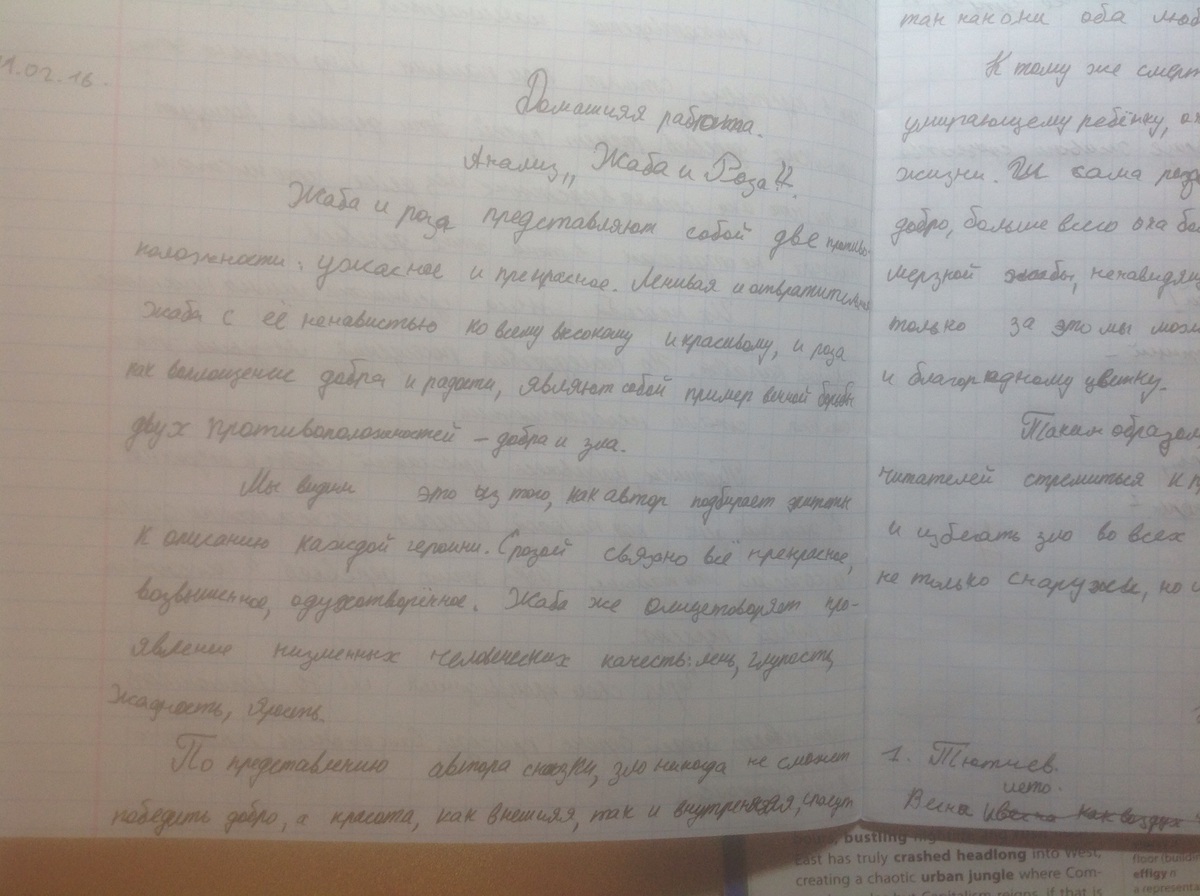 1.02.16.
Домашняя работа.
Анализ „Жаба и Роза".
Жаба и роза представляют собой две противо-
положности: ужасное и прекрасное. Ленивая и отвратительная
жаба с её ненавистью ко всему высокому и красивому, и роза
как воплощение добра и радости, являют собой пример вечной борьбы
двух противоположностей – добра и зла.
Мы видим это из того, как автор подбирает эпитеты
к описанию каждой героини. С розой связано всё прекрасное,
возвышенное, одухотворённое. Жаба же олицетворяет про-
явление низменных человеческих качеств: лень, глупость,
жадность, ярость.
По представлению автора сказки, зло никогда не сможет
победить добро, а красота, как внешняя, так и внутренняя, спасут
так как они оба люб
К тому же смерт
умирающему ребёнку, он
жизни. И сама роза
добро, больше всего она бо
мерзкой жабы, ненавидящ
только за это мы мож
и благородному цветку.
Таким образом
читателей стремиться к п
и избегать зло во всех
не только снаружи, но и
1. Тютчев.
лето.
Весна и весна как воздух
bustling
East has truly crashed headlong into West,
creating a chaotic urban jungle where Com-
but Capitalism reigns, if that is
floor (build
effigy n
a representa